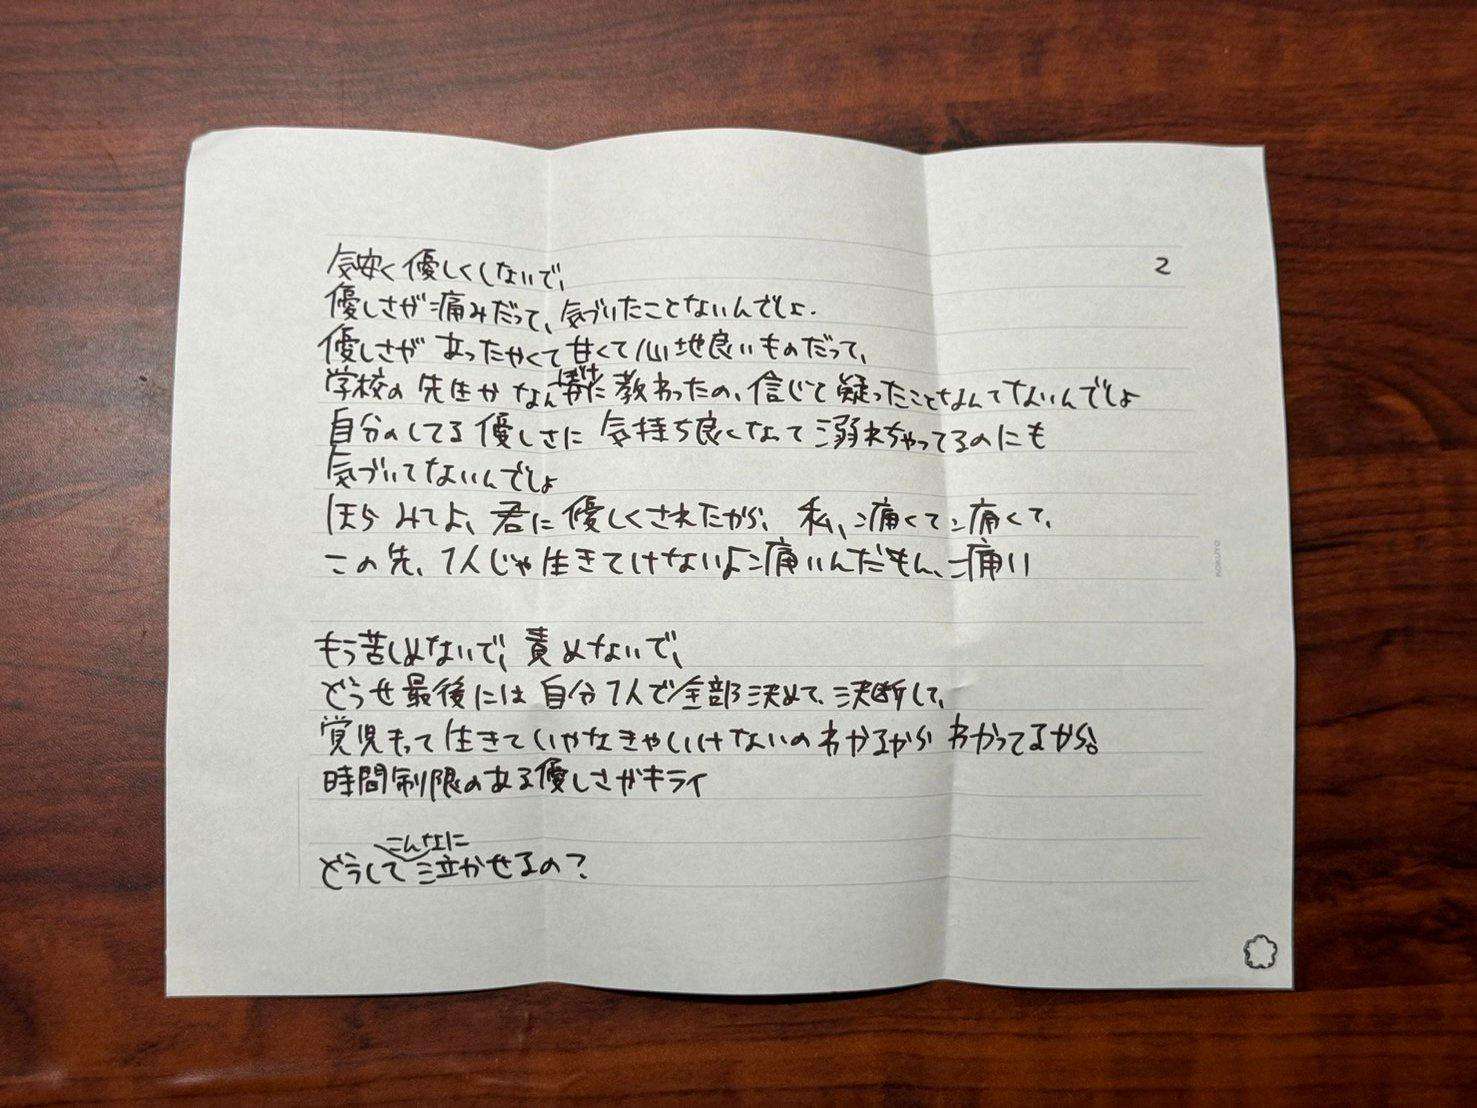 2
気安く優しくしないで、
優しさが痛みだって、気づいたことないんでしょ.
優しさがあったかくて甘くて心地良いものだって、
学校の先生かなんかに教わったの、信じて疑ったことなんてないんでしょ
自分のしてる優しさに気持ち良くなって溺れちゃってるのにも
気づいてないんでしょ
ほらみてよ、君に優しくされたから、私、痛くて痛くて、
この先、1人じゃ生きてけないよ痛いんだもん、痛い
もう苦しめないで、責めないで、
どうせ最後には自分1人で全部決めて、決断して、
覚悟もって生きていかなきゃいけないのわかるから わかってるから。
時間制限のある優しさがキライ
こんなに
どうして泣かせるの?